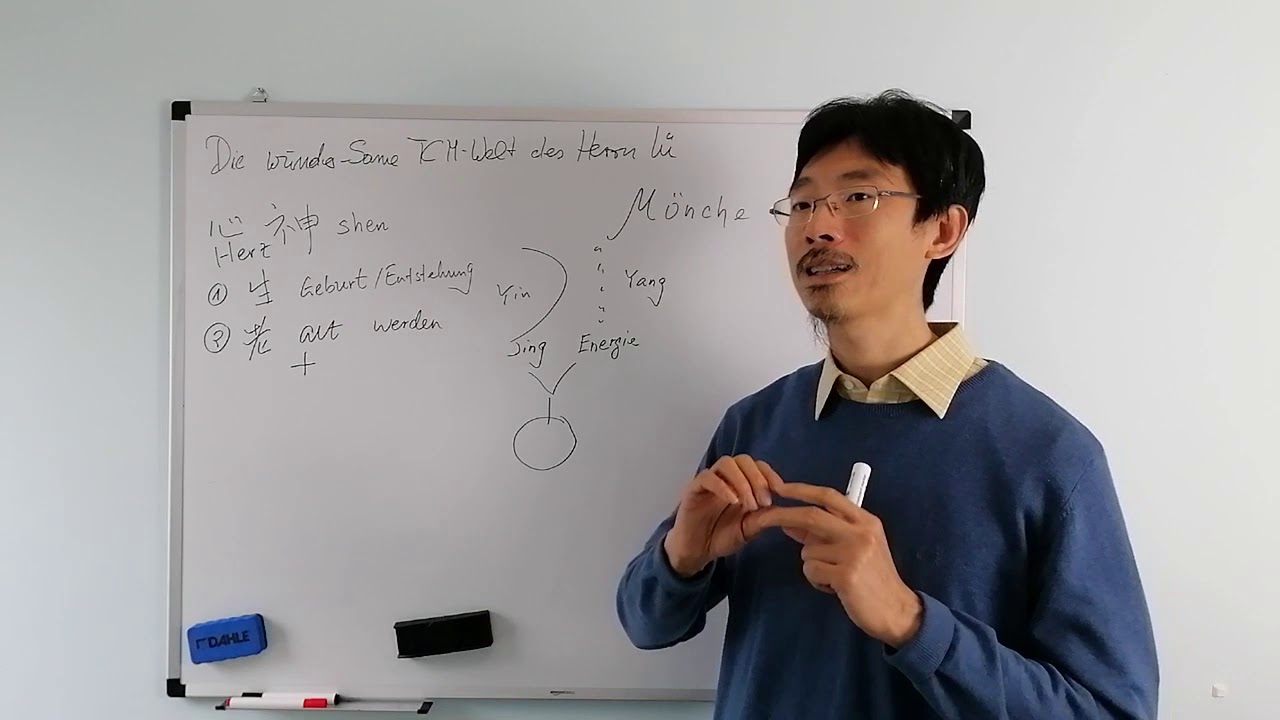 Die wunder-Same TCM-Welt des Herrn Lü
Mönche
心 神 shen
Herz
① 生 Geburt/Entstehung
Yin
Yang
② 老 alt werden
Jing
Energie
DAHLE